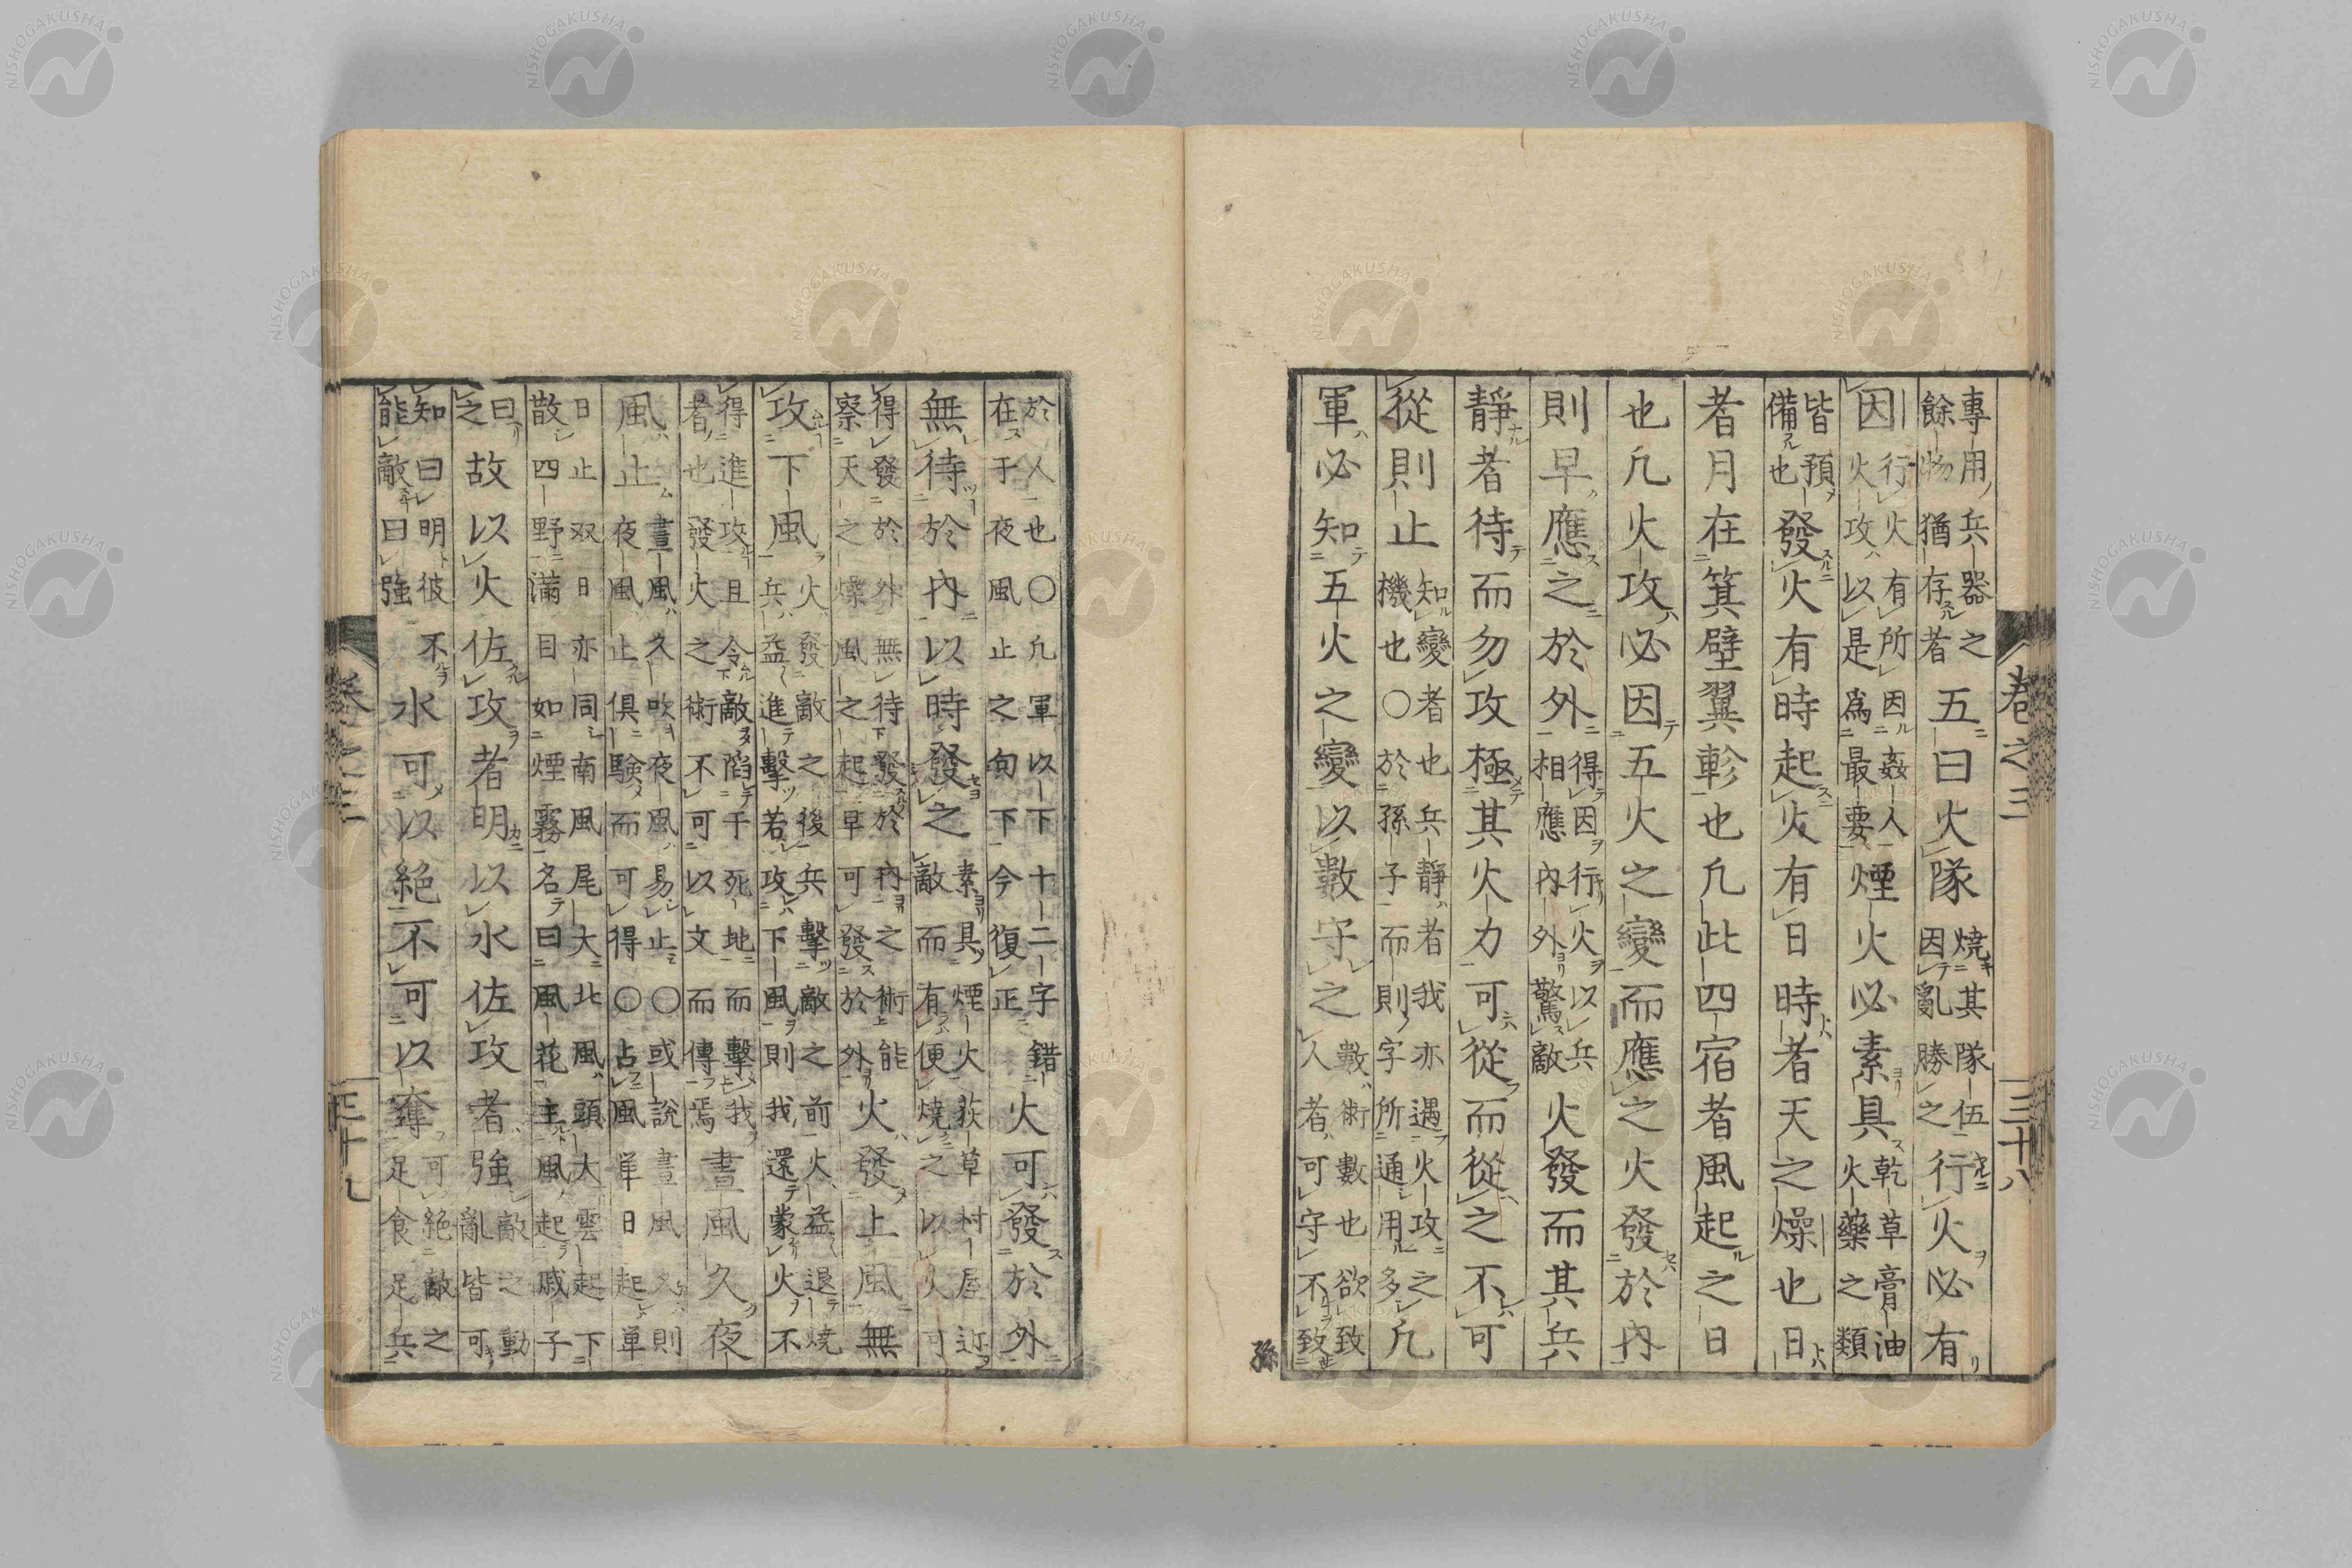 專用兵器之
餘物猶存者
五曰火隊
燒其隊伍
因亂勝之
行火必有
因
行火有所因姦人
火攻以是爲最要
煙火必素具
乾草膏油
火藥之類
皆預
備也
發火有時起火有日時者天之燥也日
者月在箕壁翼軫也凡此四宿者風起之日
也凡火攻必因五火之變而應之火發於內
則早應之於外
得因行火以兵
相應內外驚敵
火發而其兵
靜者待而勿攻極其火力可從而從之不可
從則止
知變者也兵靜者我亦遇火攻之
機也〇於孫子而則字所通用多
凡
軍必知五火之變以數守之
數術數也欲致
人者可守不致
孫
卷之三
三十八
於人也〇凡軍以下十二字錯
在于夜風止之句下今復正
火可發於外
無待於內以時發之
素具煙火荻草村屋近
敵而有便燒之以火可
得發於外無待發於內之術能
察天之燥風之起早可發於外
火發上風無
攻下風
火發敵之後兵擊敵之前火益退燒
兵益進擊若攻下風則我還蒙火不
得進攻且令敵陷于死地而擊我
者也發火之術不可以文而傳焉
晝風久夜
風止
晝風久吹夜風易止〇或說晝風久則
夜風止俱驗而可得〇占風単日起単
日止双日亦同南風尾大北風頭大雲起下
散四野滿目如煙霧名曰風花主風起戚子
曰
之
故以火佐攻者明以水佐攻者強
敵之動
亂皆可
知曰明彼不
能敵曰強
水可以絕不可以奪
可絕敵之
足食足兵
卷之三
三十九